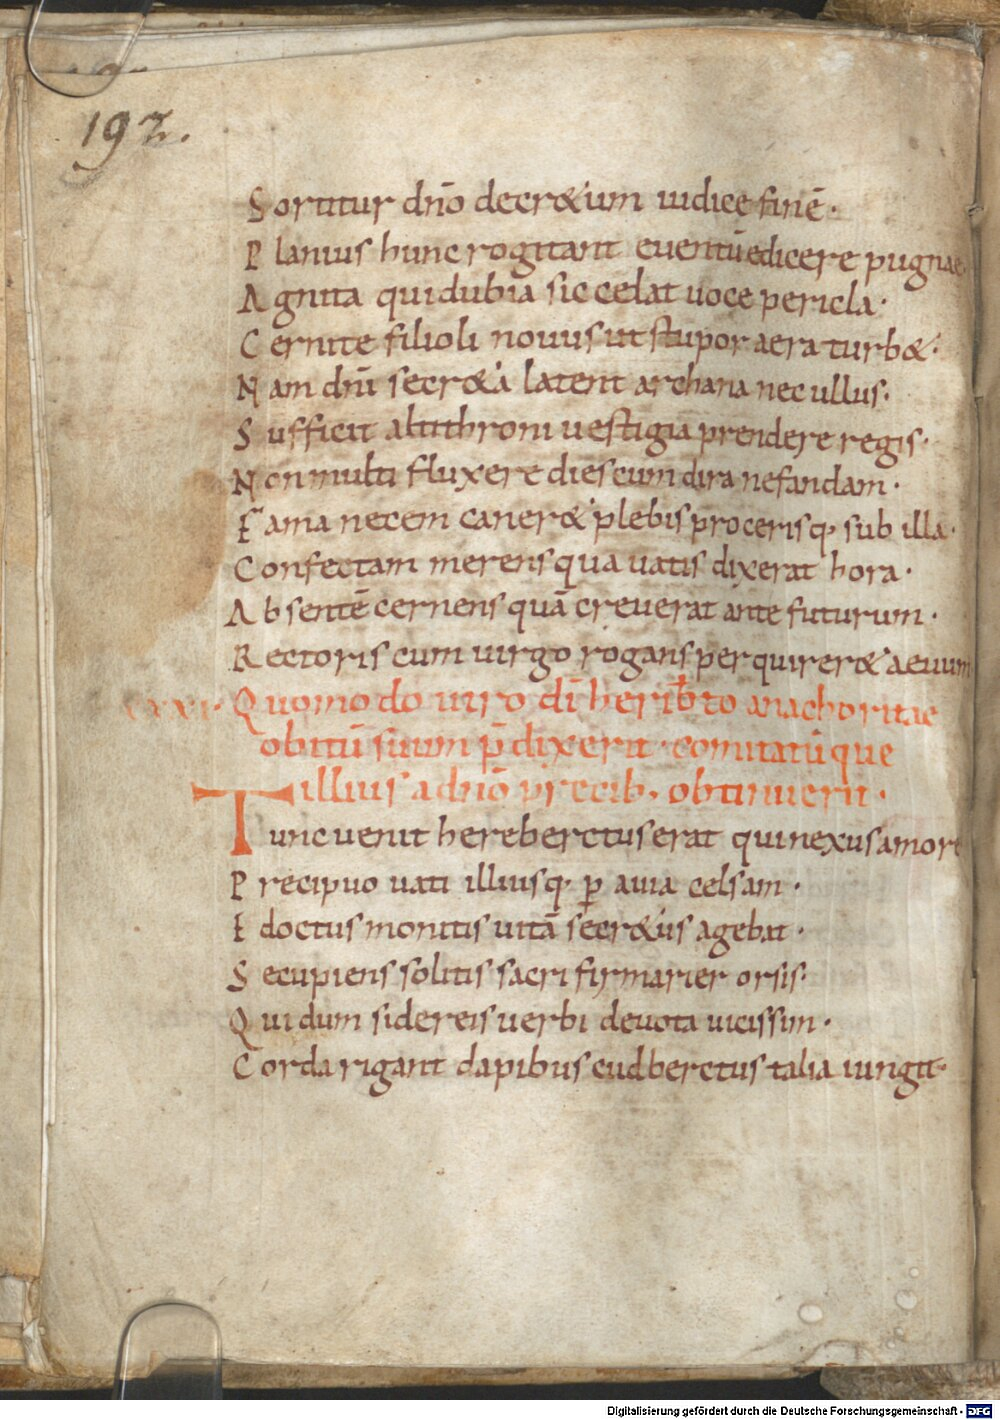 192.
Sortitur dn̄o decr&um iudice finē.
Planius hunc rogitant eventū edicere pugnae.
Agnita qui dubia sic celat uoce pericla.
Cernite filioli novus ut stupor aera turb&.
Nam dn̄i secr&a latent archana nec ullus.
Sufficit altithroni uestigia prendere regis.
Non multi fluxere dies cum dira nefandam.
Fama necem caner& plebis procerisq. sub illa.
Confectam merens qua uatis dixerat hora.
Absentē cernens quā creuerat ante futurum.
Rectoris cum uirgo rogans perquirer& aeuum
Quomodo uiro dī heribt̄o anachoritae
obitū suum p̄dixerit. comitatūque
illius a dn̄o precib. obtinuerit.
Tunc uenit hereberctus erat qui nexus amore
Precipuo uati illiusq. ꝑ auia celsam.
Edoctus monitis uitā secr&ius agebat.
Se cupiens solitis sacri firmarier orsis.
Qui dum sidereis uerbi deuota uicissim.
Corda rigant dapibus cudberctus talia iungit.
Digitalisierung gefördert durch die Deutsche Forschungsgemeinschaft - DFG